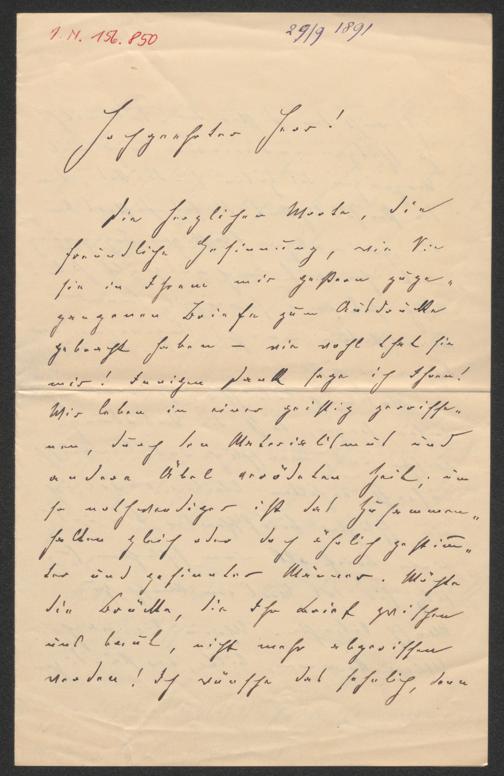 I. N. 156.850
29/9 1891
Hochgeehrter Herr!
Die herzlichen Worte, die
freundliche Gesinnung, wie Sie
sie in Ihrem mir gestern zuge-
gangenen Briefe zum Ausdrucke
gebracht haben – wie wohl that sie
mir! Innigen Dank sage ich Ihnen!
Wir leben in einer geistig zerrisse-
nen, durch den Materialismus und
andere Übel verödeten Zeit; um
so nothwendiger ist das Zusammen-
halten gleich oder doch ähnlich gestimm-
ter und gesinnter Männer. Möchte
die Brücke, die Ihr Brief zwischen
uns baut, nicht mehr abgerissen
werden! Ich wünsche das sehnlich, denn